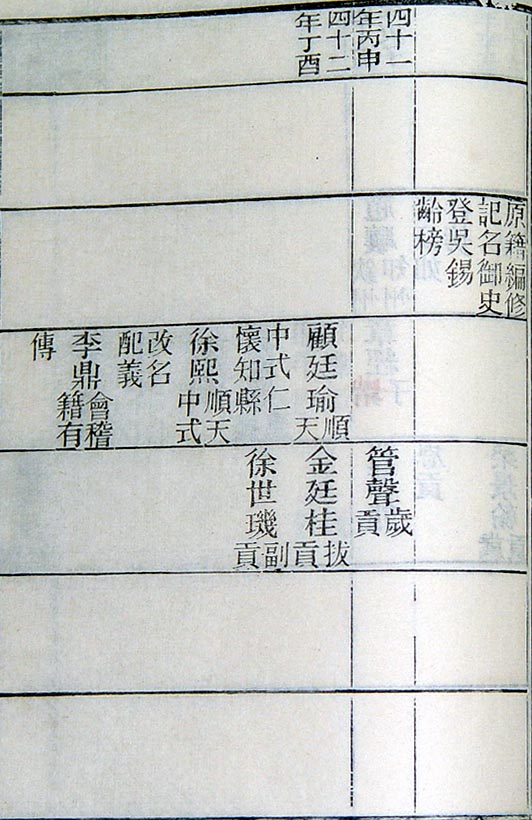 四十一
年丙申
四十二
年丁酉
原籍編修
記名御史
登吳錫
齡榜
顧廷瑜順天
中式仁
懷知縣
徐熙順天中式
改名
配義
李鼎會稽籍有
傳
管聲歲貢
金廷桂拔貢
徐世璣副貢